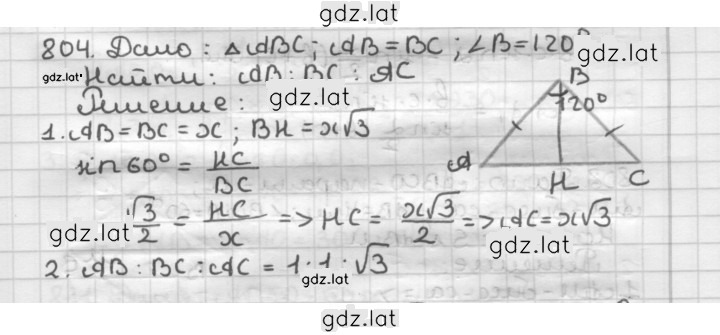 gdz.lat
804. Дано: △ABC; AB=BC; ∠B=120°
gdz.lat
gdz.lat
Найти: AB:BC:AC
Решение:
gdz.lat
1. AB=BC=x; BH=x√3
sin 60° = HC/BC
√3/2 = HC/x => HC= x√3/2 => AC=x√3
gdz.lat
gdz.lat
2. AB:BC:AC = 1:1:√3
gdz.lat
B
120°
A
H
C
gdz.lat